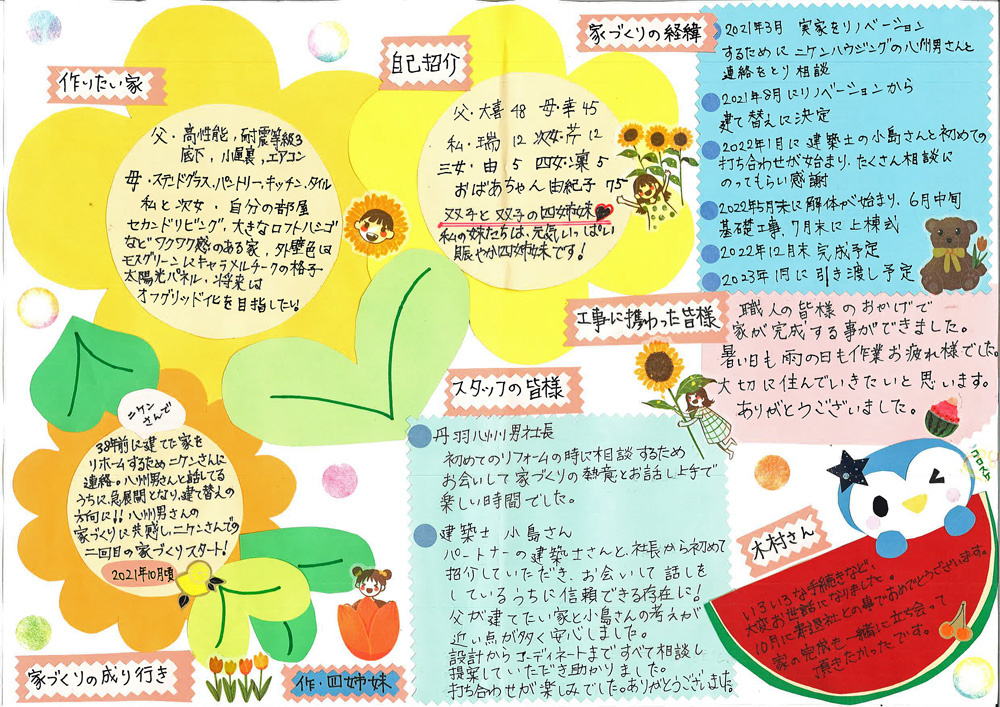 作りたい家
父・高性能,耐震等級3
廊下,小屋裏,エアコン
母・ステンドグラス,パントリー,キッチン,タイル
私と次女・自分の部屋
セカンドリビング,大きなロフトハシゴ
などワクワク感のある家,外壁色は
モスグリーンにキャラメルチークの格子
太陽光パネル,将来は
オフグリッド化を目指したい。
自己紹介
父・大喜 48 母・幸 45
私・瑞 12 次女・芹 12
三女・由 5 四女・凜 5
おばあちゃん 由紀子 75
双子と双子の四姉妹
私の妹たちは、元気いっぱい
賑やか四姉妹です!
家づくりの経緯
2021年3月 実家をリノベーション
するために ニケンハウジングの八州男さんと
連絡をとり 相談
2021年8月にリノベーションから
建て替えに決定
2022年1月に 建築士の小島さんと初めての
打ち合わせが始まり、たくさん相談に
のってもらい感謝
2022年5月末に解体が始まり、6月中旬
基礎工事、7月末に上棟式
2022年12月末 完成予定
2023年1月に 引き渡し予定
工事に携わった皆様
職人の皆様のおかげで
家が完成する事ができました。
暑い日も雨の日も作業お疲れ様でした。
大切に住んでいきたいと思います。
ありがとうございました。
ニケン
さんで
38年前に建てた家を
リホームするためニケンさんに
連絡。八州男さんと話してる
うちに、急展開となり、建て替えの
方向に!! 八州男さんの
家づくりに共感し、ニケンさんでの
二回目の家づくりスタート!
2021年10月頃
家づくりの成り行き
作・四姉妹
スタッフの皆様
丹羽八州男社長
初めてのリフォームの時に相談するため
お会いして家づくりの熱意とお話し上手で
楽しい時間でした。
建築士 小島さん
パートナーの建築士さんと、社長から初めて
紹介していただき、お会いして話しを
しているうちに信頼できる存在に!
父が建てたい家と小島さんの考えが
近い点が多く安心しました。
設計からコーディネートまですべて相談し
提案していただき助かりました。
打ち合わせが楽しみでした。ありがとうございました。
木村さん
いろいろな手続きなど、
大変お世話になりました。
10月に寿退社との事でおめでとうございます。
家の完成を一緒に立ち会って
頂きたかったです。